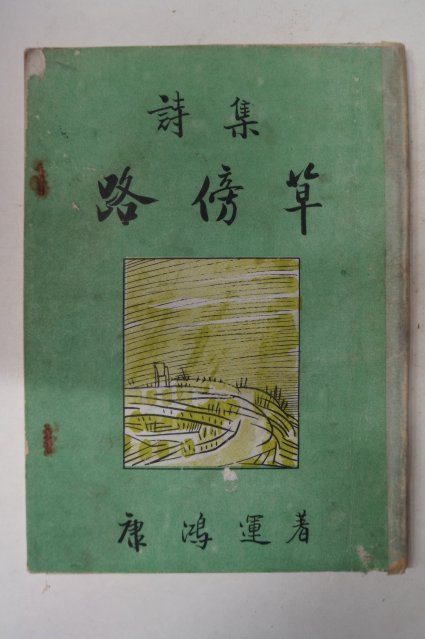 詩集
路傍草
康鴻運著